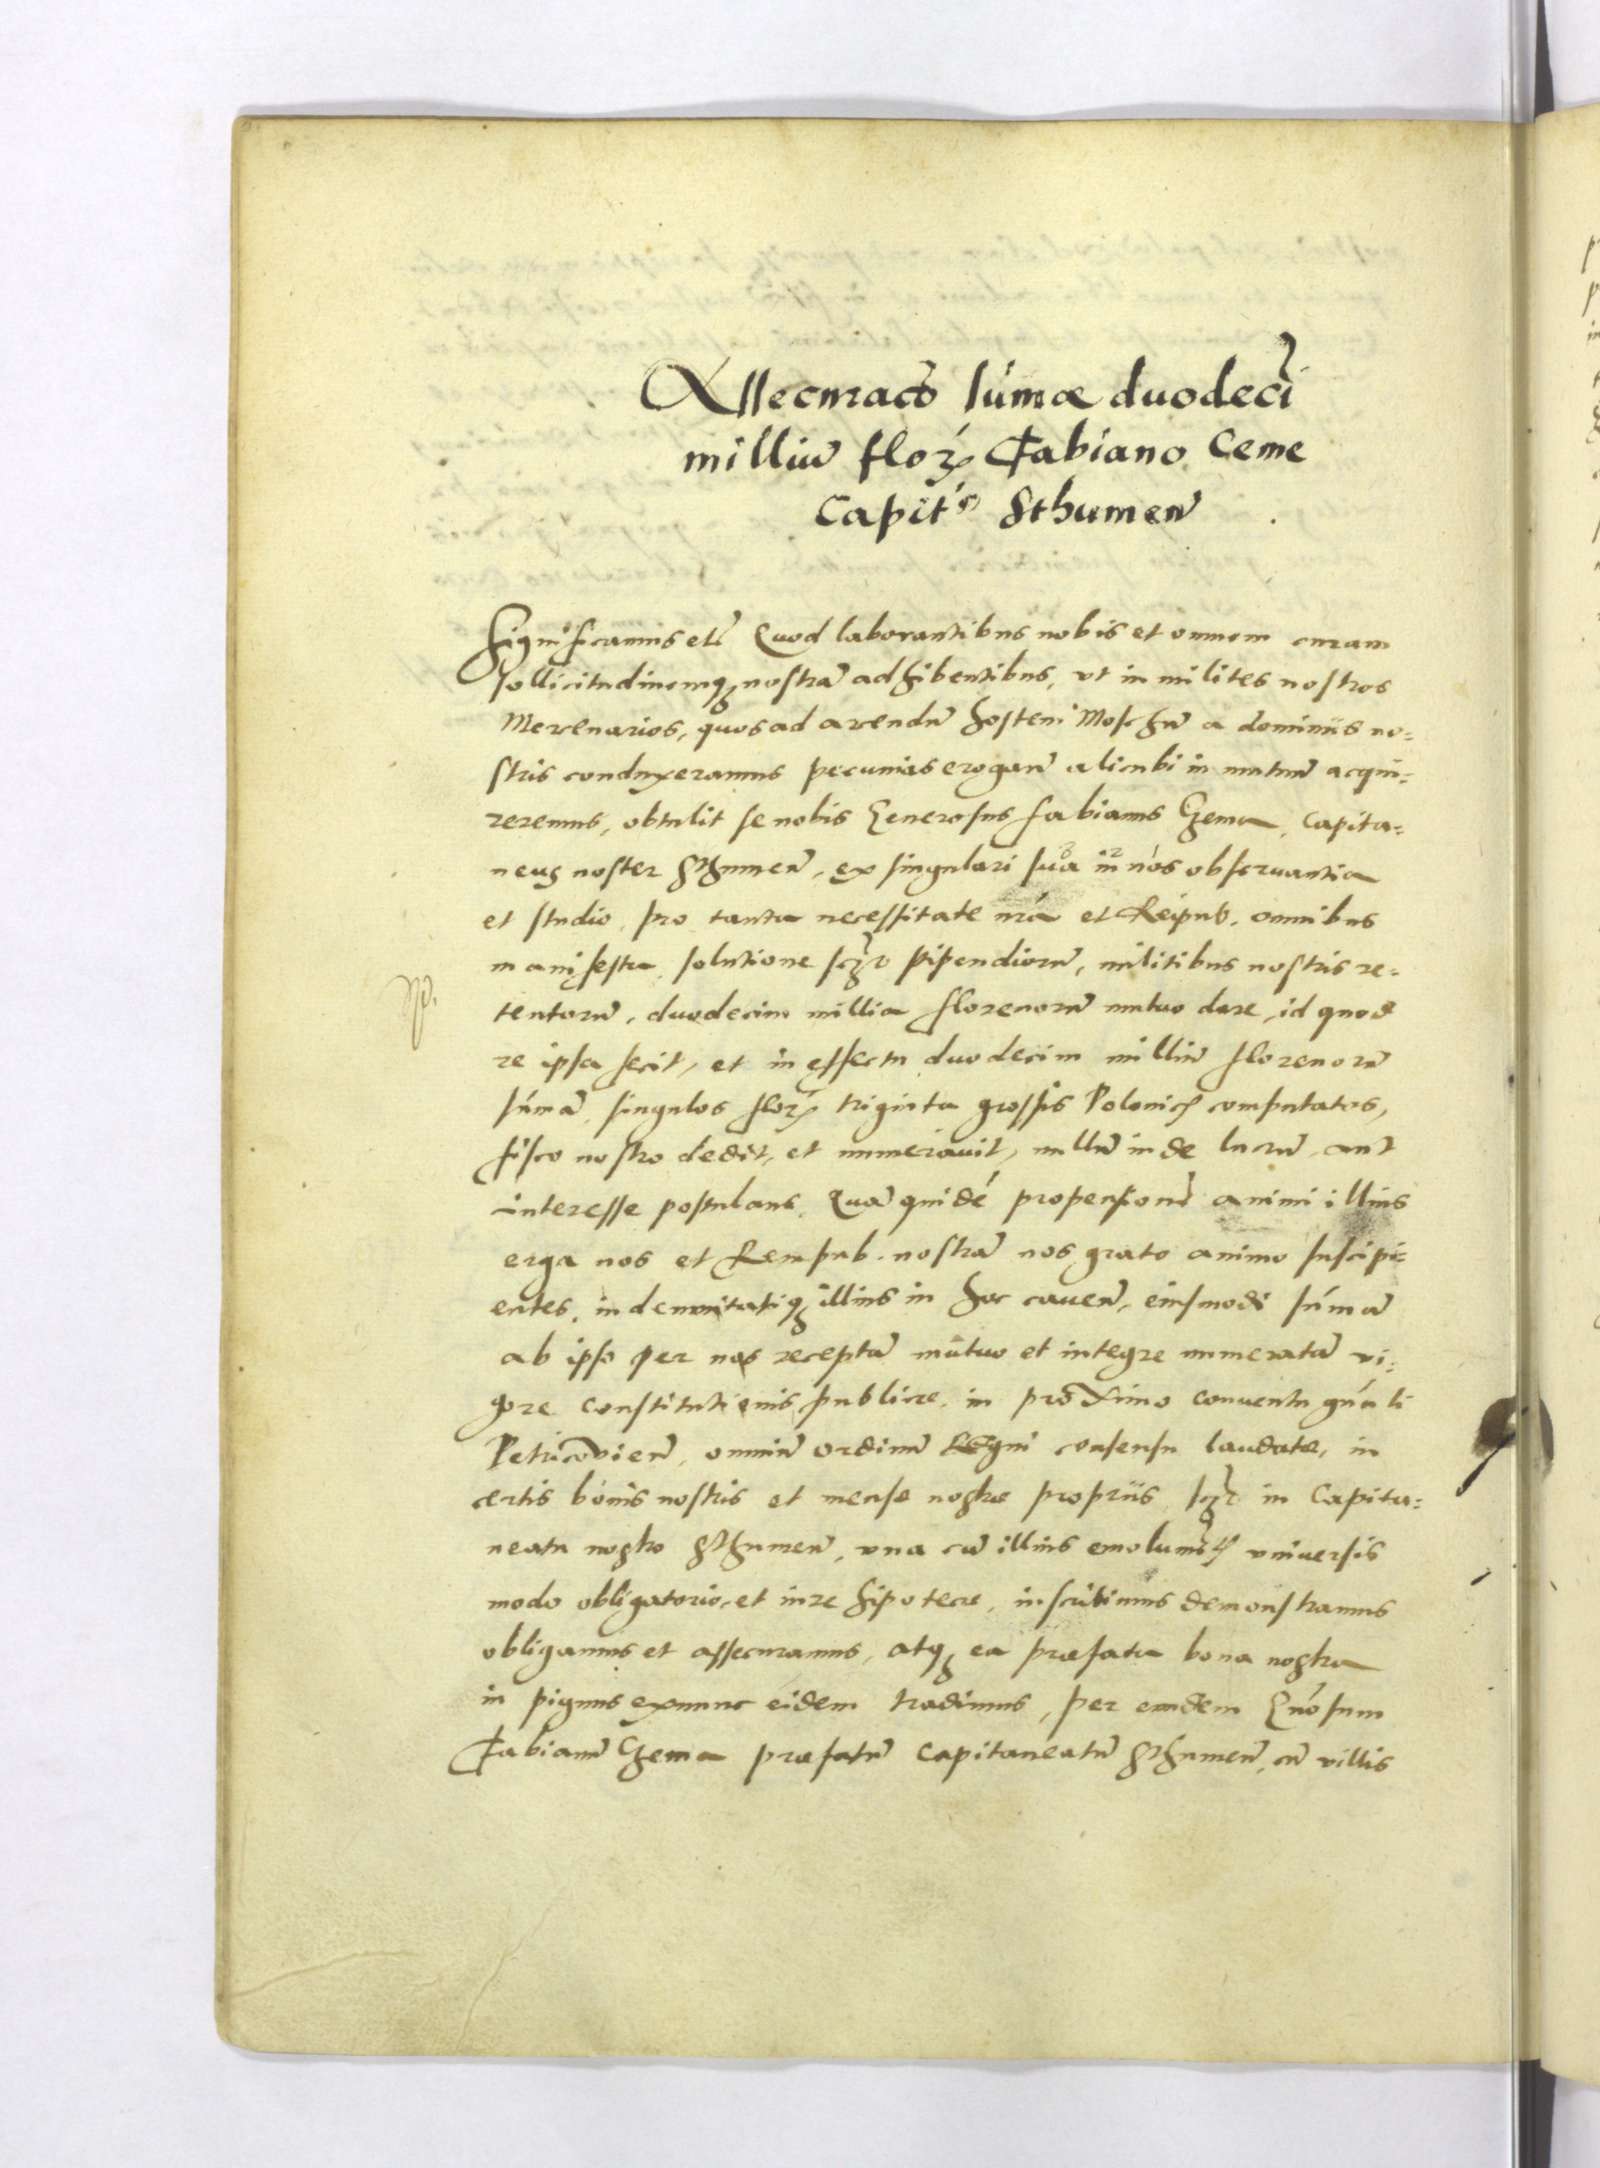 Assecuracõ sūmæ duodecī
milliū floꝝ Fabiano Ceme
Capitᵒ Sthumeñ
Significamus etc̄ Quod laborantibus nobis et omnem curam
sollicitudinemqꝫ nostrā adhibentibus, vt in milites nostros
Mercenarios, quos ad arcendū hostem Moschū a dominiis no=
stris conduxeramus pecunias erogañ alicubi in mutuū acqui=
reremus, obtulit se nobis Generosus Fabianus Czema, Capita=
neus noster Sthumeñ, ex singulari sua in nos obseruantia
et studio, pro tanta necessitate nr̄a et Reipub. omnibus
manifesta, solutione sczt stipendiorū, militibus nostris re=
tentorū, duodecim millia florenorū mutuo dare, id quod
re ipsa fecit, et in effectu duodecim milliū florenorū
sūmā, singulos floꝝ triginta grossis Polonicꝭ computatos,
fisco nostro dedit, et numerauit, nullū inde lucrū aut
interesse postulans. Quā quidē propensionē animi illius
erga nos et Rempub. nostrā nos grato animo suscipi=
entes, indemnitatiqꝫ illius in hoc caueñ, eiusmodi sūmā
ab ipso per nos receptā mutuo et integre numeratā vi=
gore constitutionis publice, in proximo conuentu gn̄ali
Petricouieñ, omniū ordinū Regni consensu laudate, in
certis bonis nostris et mense nostre propriis sczt in Capita=
neatu nostro Sthumeñ, vna cū illius emolumētꝭ vniuersis
modo obligatorio, et iure hipotece, inscribimus demonstramus
obligamus et assecuramus, atqꝫ ea præfata bona nostra
in pignus exnunc eidem tradimus, per eundem Gn̄osum
Fabianū Czema præfatū Capitaneatū Sthumeñ, cū villis